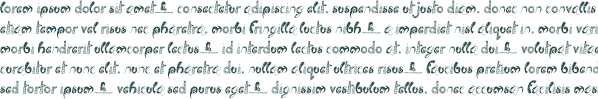 lorem ipsum dolor sit amet & consectetur adipiscing elit. suspendisse ut justo diam. donec non convallis
etiam tempor vel risus nec pharetra. morbi fringilla luctus nibh & a imperdiet nisl aliquet in. morbi vari
morbi hendrerit ullamcorper lectus & id interdum lectus commodo at. integer nulla dui & volutpat vitae
curabitur at nunc elit. nunc et pharetra dui. nullam aliquet ultrices risus & faucibus pretium lorem biband
sed tortor ipsum & vehicula sed purus eget & dignissim vestibulum tellus. donec accumsan facilisis mas